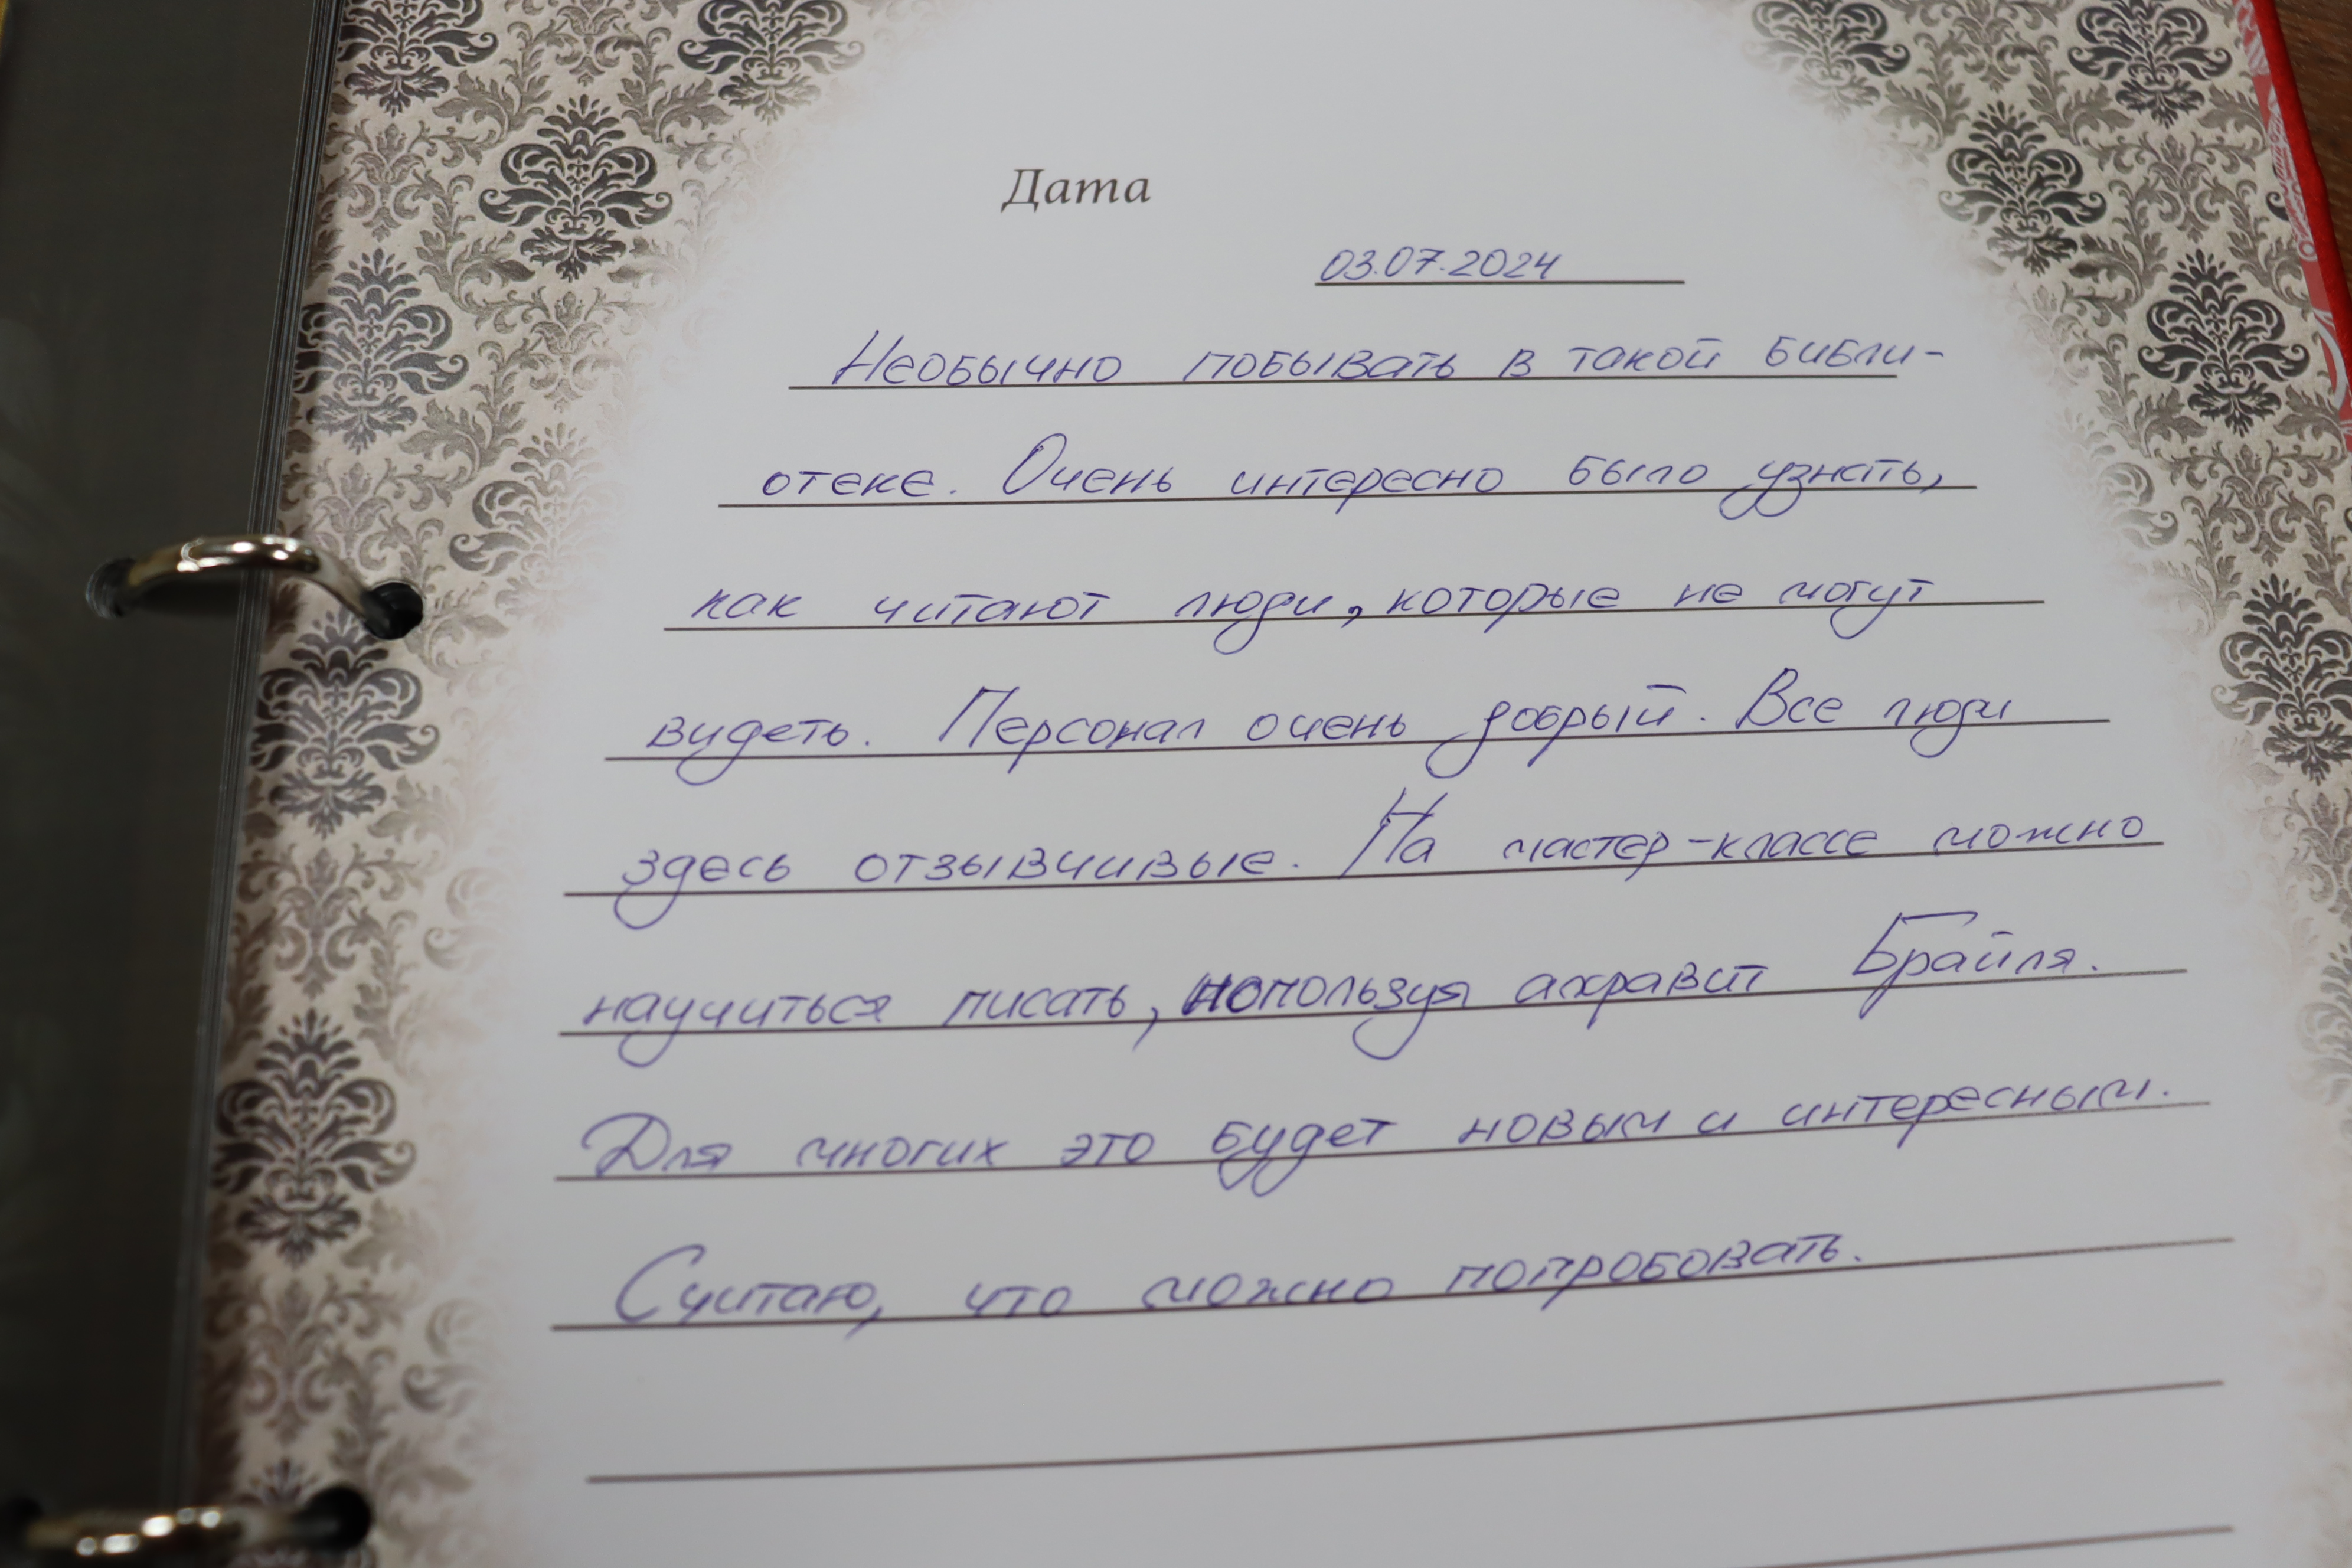 Дата
03.07.2024
Необычно побывать в такой библи-
отеке. Очень интересно было узнать,
как читают люди, которые не могут
видеть. Персонал очень добрый. Все люди
здесь отзывчивые. На мастер-классе можно
научиться писать, используя алфавит Брайля.
Для многих это будет новым и интересным.
Считаю, что можно попробовать.